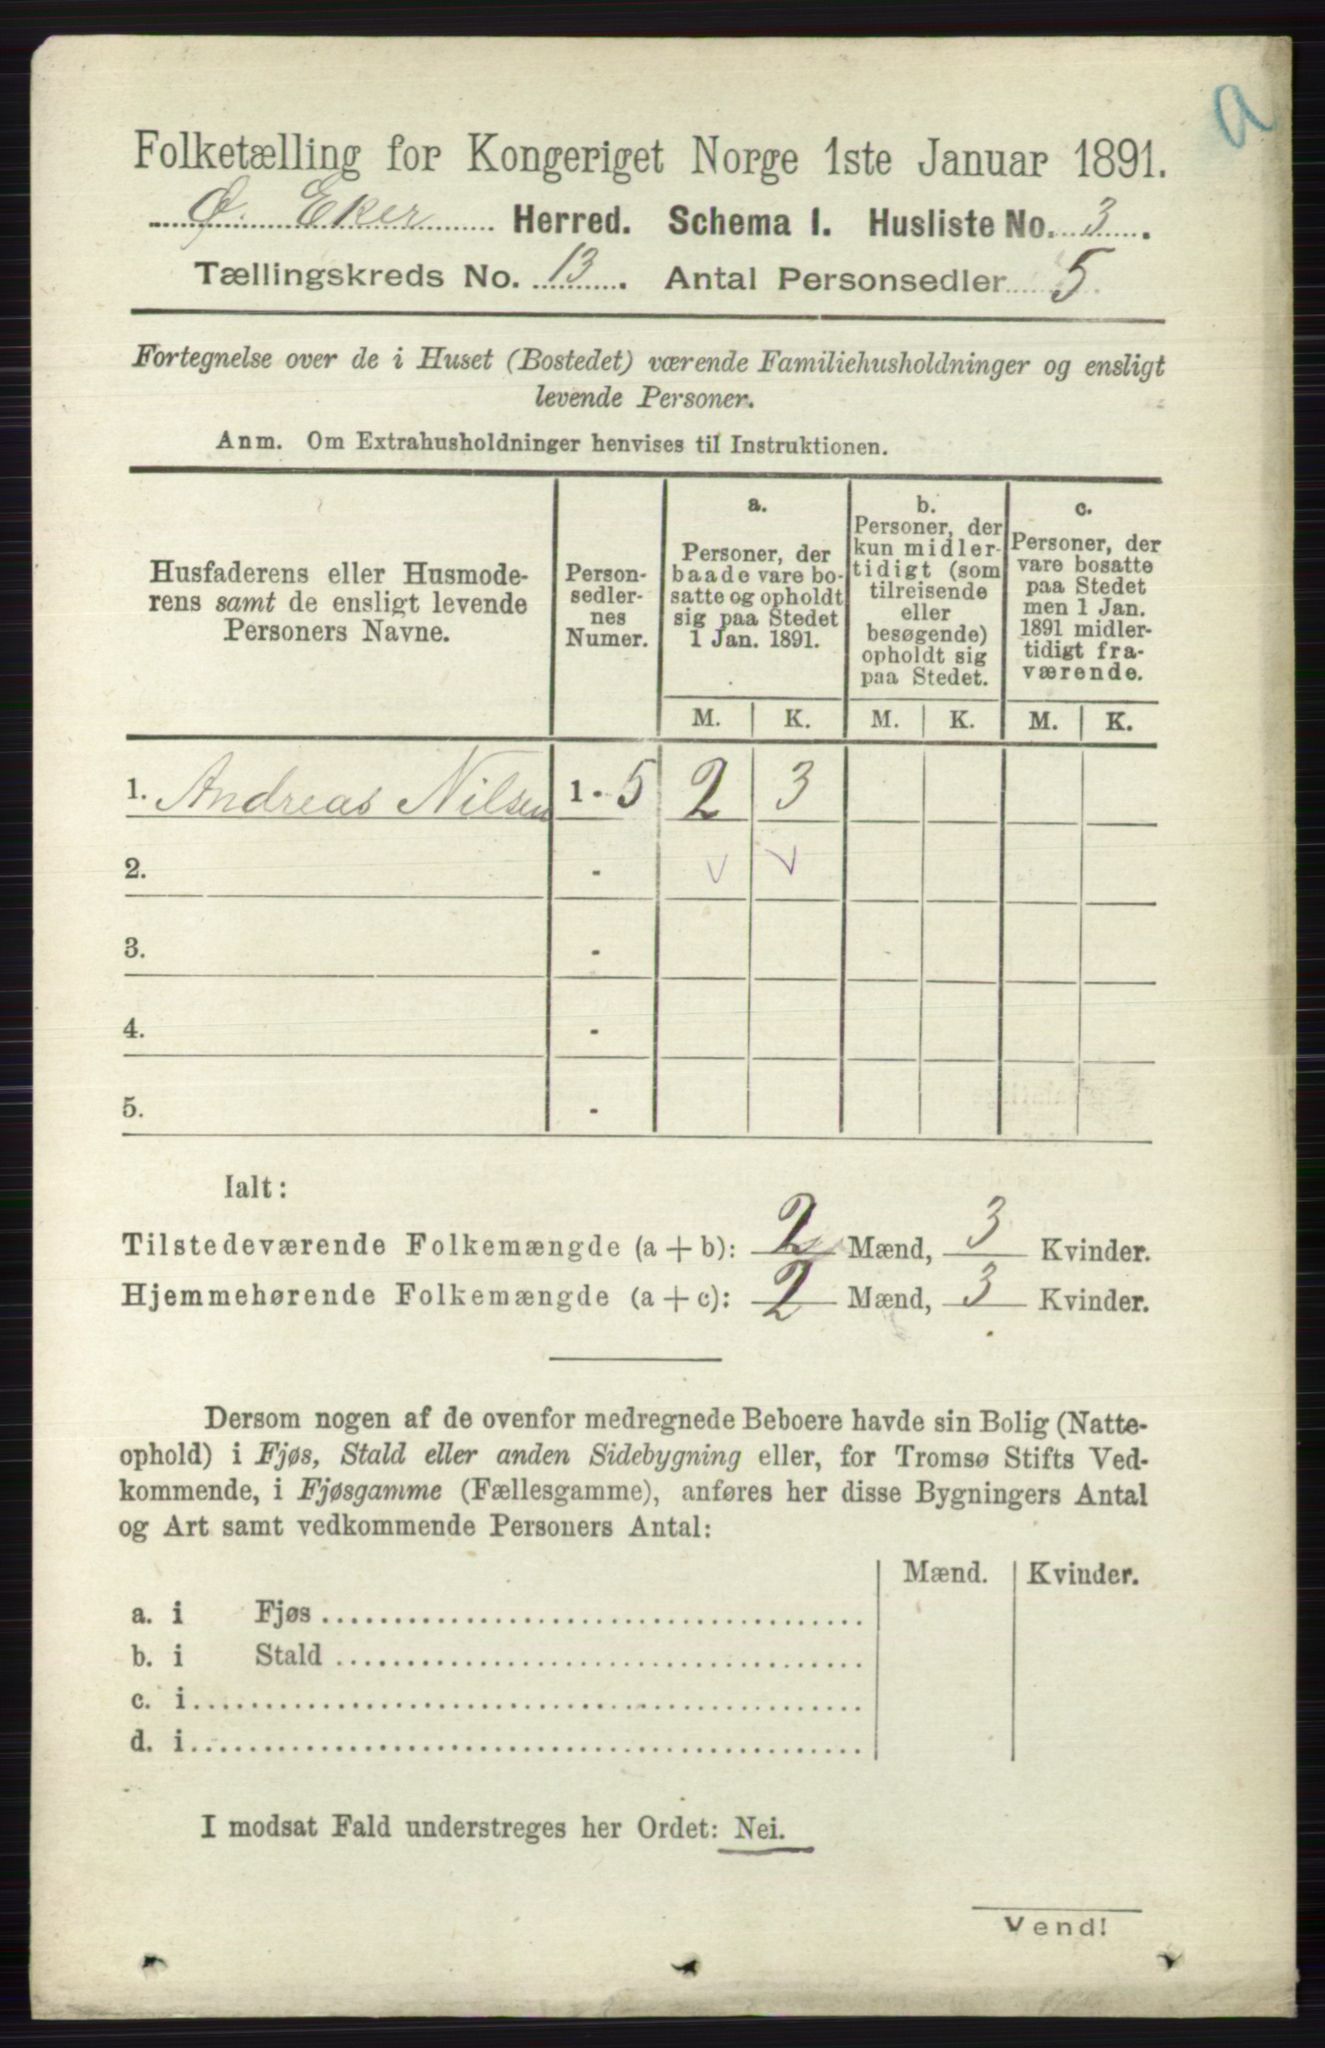 a
Folketælling for Kongeriget Norge 1ste Januar 1891.
Ø. Eker Herred. Schema I. Husliste No. 3.
Tællingskreds No. 13. Antal Personsedler 5
Fortegnelse over de i Huset (Bostedet) værende Familiehusholdninger og ensligt
levende Personer.
Anm. Om Extrahusholdninger henvises til Instruktionen.
Husfaderens eller Husmode-
rens samt de ensligt levende
Personers Navne.
Person-
sedler-
nes
Numer.
a.
Personer, der
baade vare bo-
satte og opholdt
sig paa Stedet
1 Jan. 1891.
b.
Personer, der
kun midler-
tidigt (som
tilreisende
eller
besøgende)
opholdt sig
paa Stedet.
c.
Personer, der
vare bosatte
paa Stedet
men 1 Jan.
1891 midler-
tidigt fra-
værende.
M. K. M. K. M. K.
1. Andreas Nilsen 1 - 5 2 3
2. -
3. -
4. -
5. -
Ialt:
Tilstedeværende Folkemængde (a + b): 2 Mænd, 3 Kvinder.
Hjemmehørende Folkemængde (a + c): 2 Mænd, 3 Kvinder.
Dersom nogen af de ovenfor medregnede Beboere havde sin Bolig (Natte-
ophold) i Fjøs, Stald eller anden Sidebygning eller, for Tromsø Stifts Ved-
kommende, i Fjøsgamme (Fællesgamme), anføres her disse Bygningers Antal
og Art samt vedkommende Personers Antal:
Mænd. Kvinder.
a. i Fjøs
b. i Stald
c. i
d. i
I modsat Fald understreges her Ordet: Nei.
Vend!